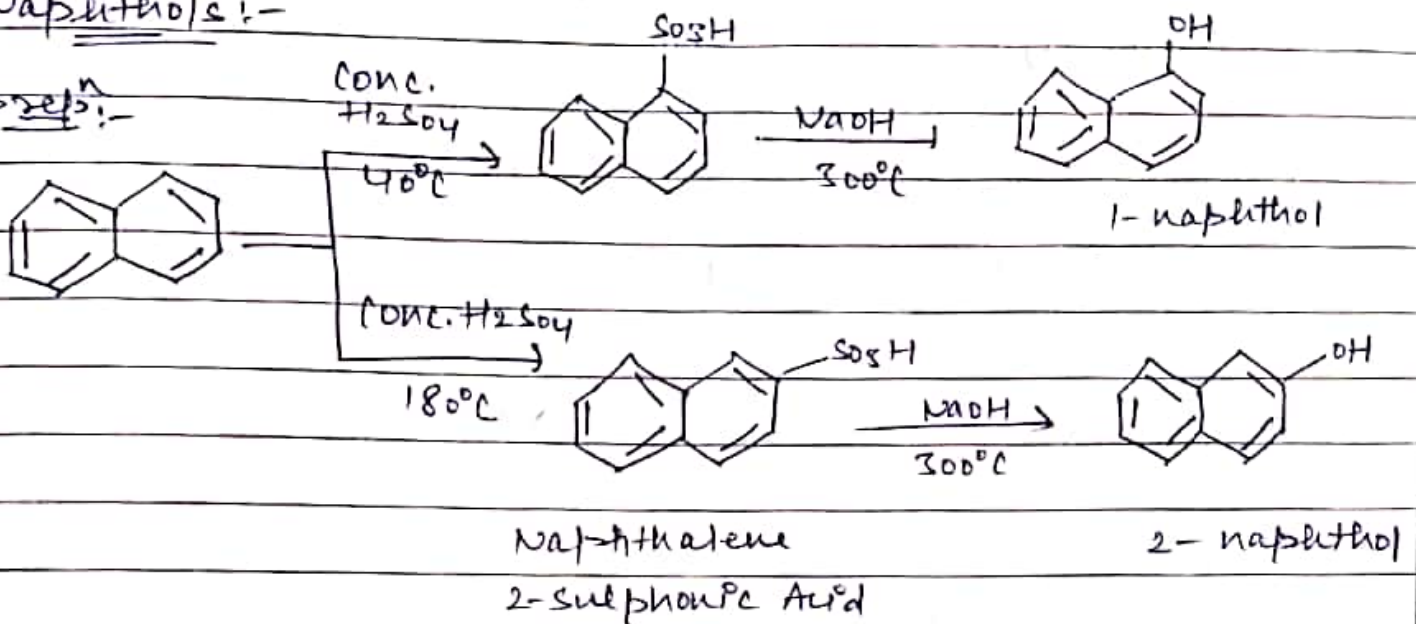 Naphthols :-
Prepn :-
SO3H
OH
Conc.
H2SO4
40°C
NaOH
300°C
1-naphthol
Conc. H2SO4
180°C
SO3H
NaOH
300°C
OH
Naphthalene
2-sulphonic Acid
2- naphthol